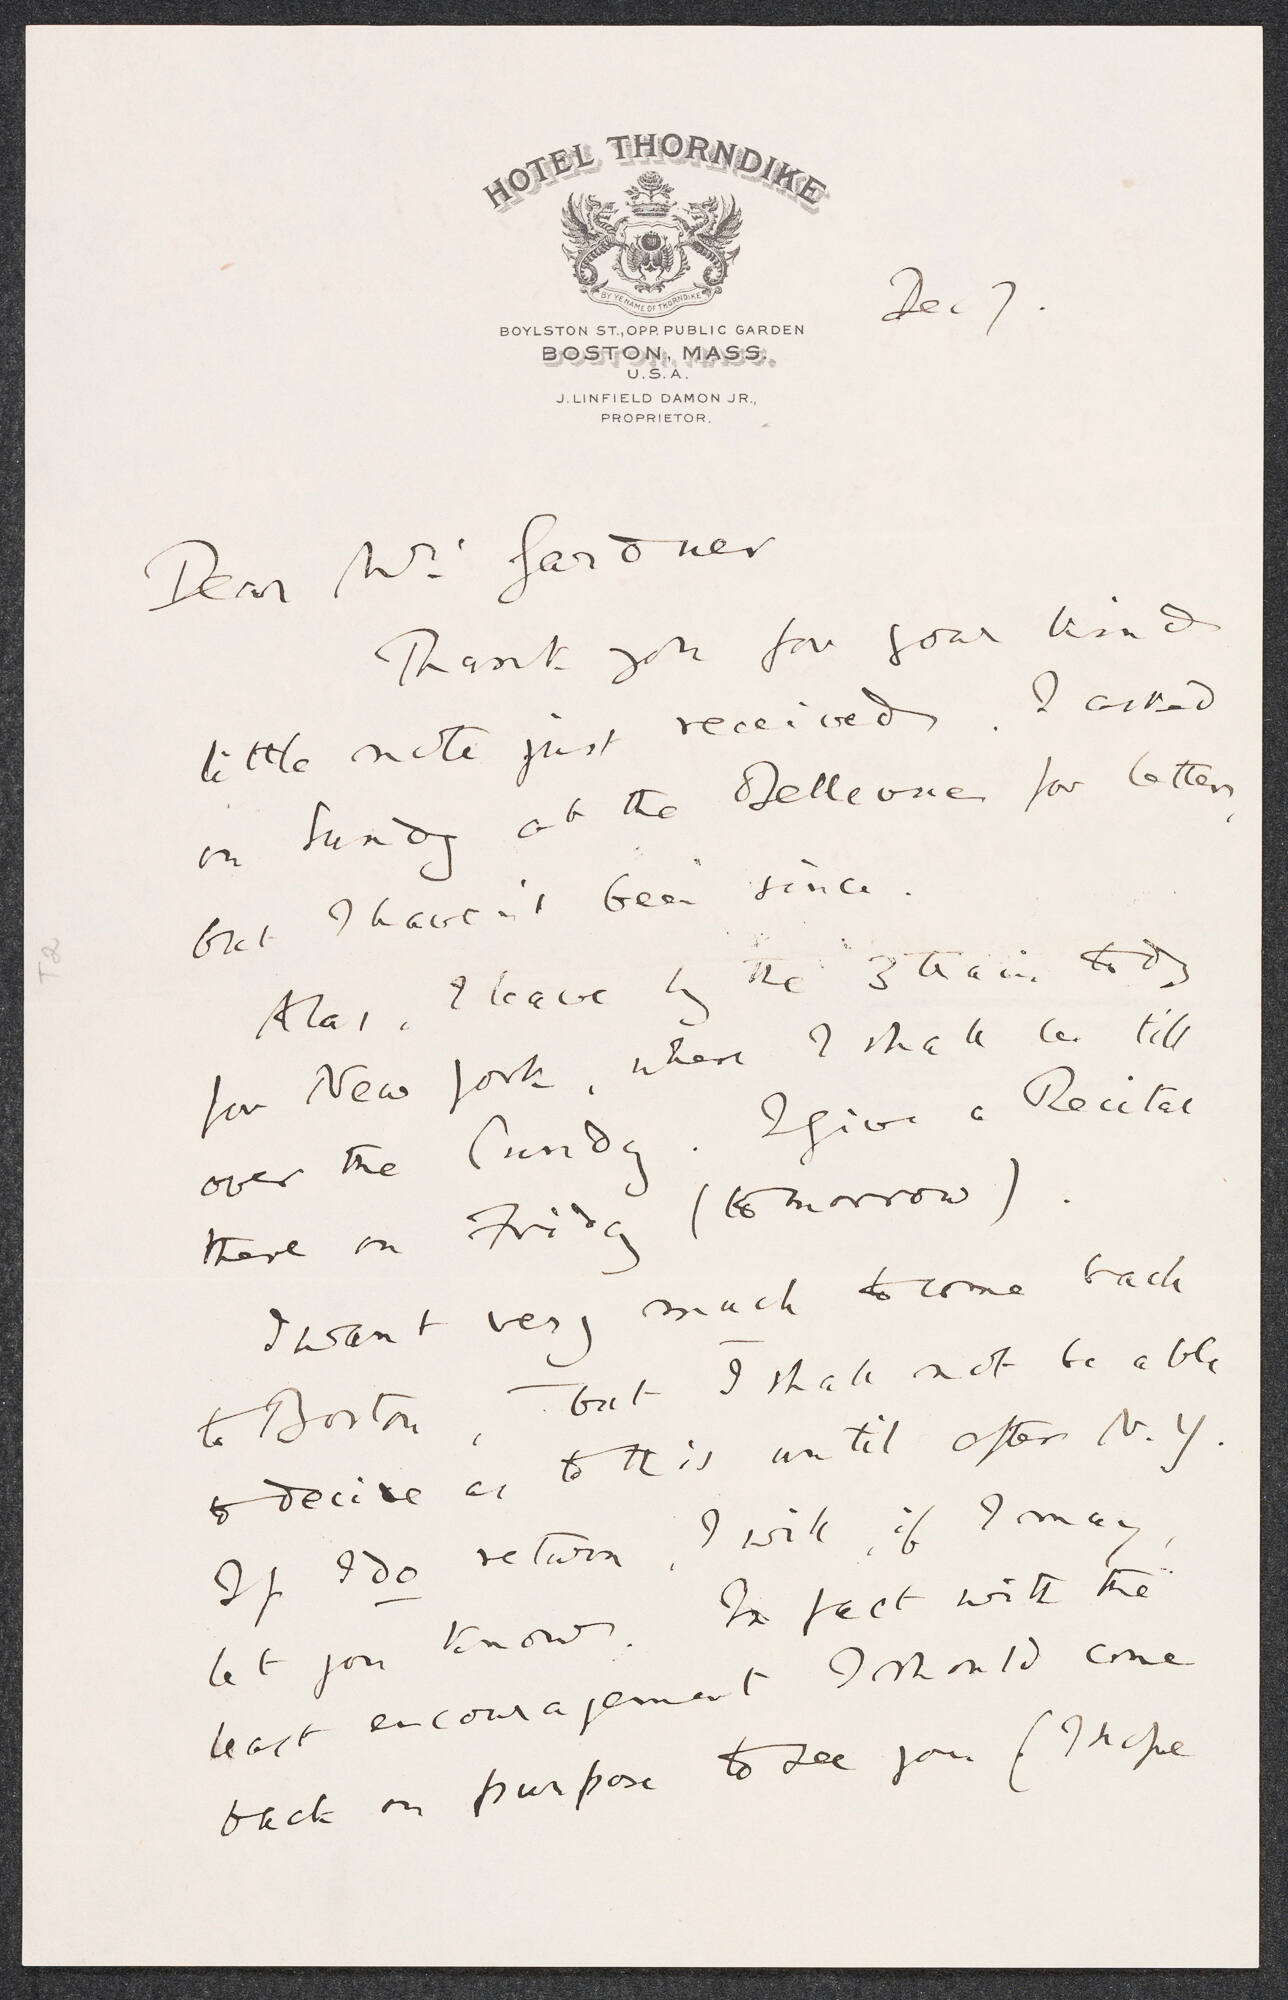 HOTEL THORNDIKE
BY YE NAME OF THORNDIKE
BOYLSTON ST., OPP. PUBLIC GARDEN
BOSTON, MASS.
U.S.A.
J. LINFIELD DAMON JR.,
PROPRIETOR.
Dec 7.
Dear Mrs. Gardner
Thank you for your kind
little note just received. I asked
on Sunday at the Bellevue for letters,
but I haven't been since.
Alas, I leave by the 3 train today
for New York, where I shall be till
over the Sunday. I give a Recital
there on Friday (tomorrow).
I want very much to come back
to Boston, but I shall not be able
to decide as to this until after N.Y.
If I do return, I will, if I may,
let you know. In fact with the
least encouragement I should come
back on purpose to see you (I hope
T2